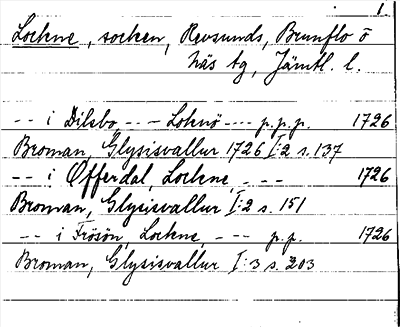 1.
Lockne, socken, Revsunds, Brunflo o
Näs tg, Jämtl. l.
-- i Dilsbo --- Loknö --- p.p.p. 1726
Broman, Glysisvallur 1726 I:2 s. 137
-- i Øfferdal, Lockne, --- 1726
Broman, Glysisvallur I:2 s. 151
-- i Frösön, Lockne, --- p.p. 1726
Broman, Glysisvallur I:3 s. 203